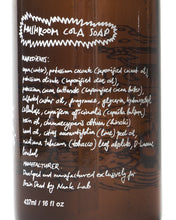 MUSHROOM COLA SOAP
INGREDIENTS:
aqua (water), potassium cocoate (saponified coconut oil),
potassium olivate (saponified olive oil),
potassium cocoa butterate (saponified cocoa butter),
sulfated castor oil, fragrance, glycerin, hydroxyethyl
cellulose, cupressus
seed oil,
oil, citrus aurantifolia (lime) peel oil,
nicotiana tabacum (tobacco) leaf absolute, D-Limonene,
linalool.
MANUFACTURER:
Developed and manufactured exclusively for
Brain Dead by Lab
437ml / 16 fl oz